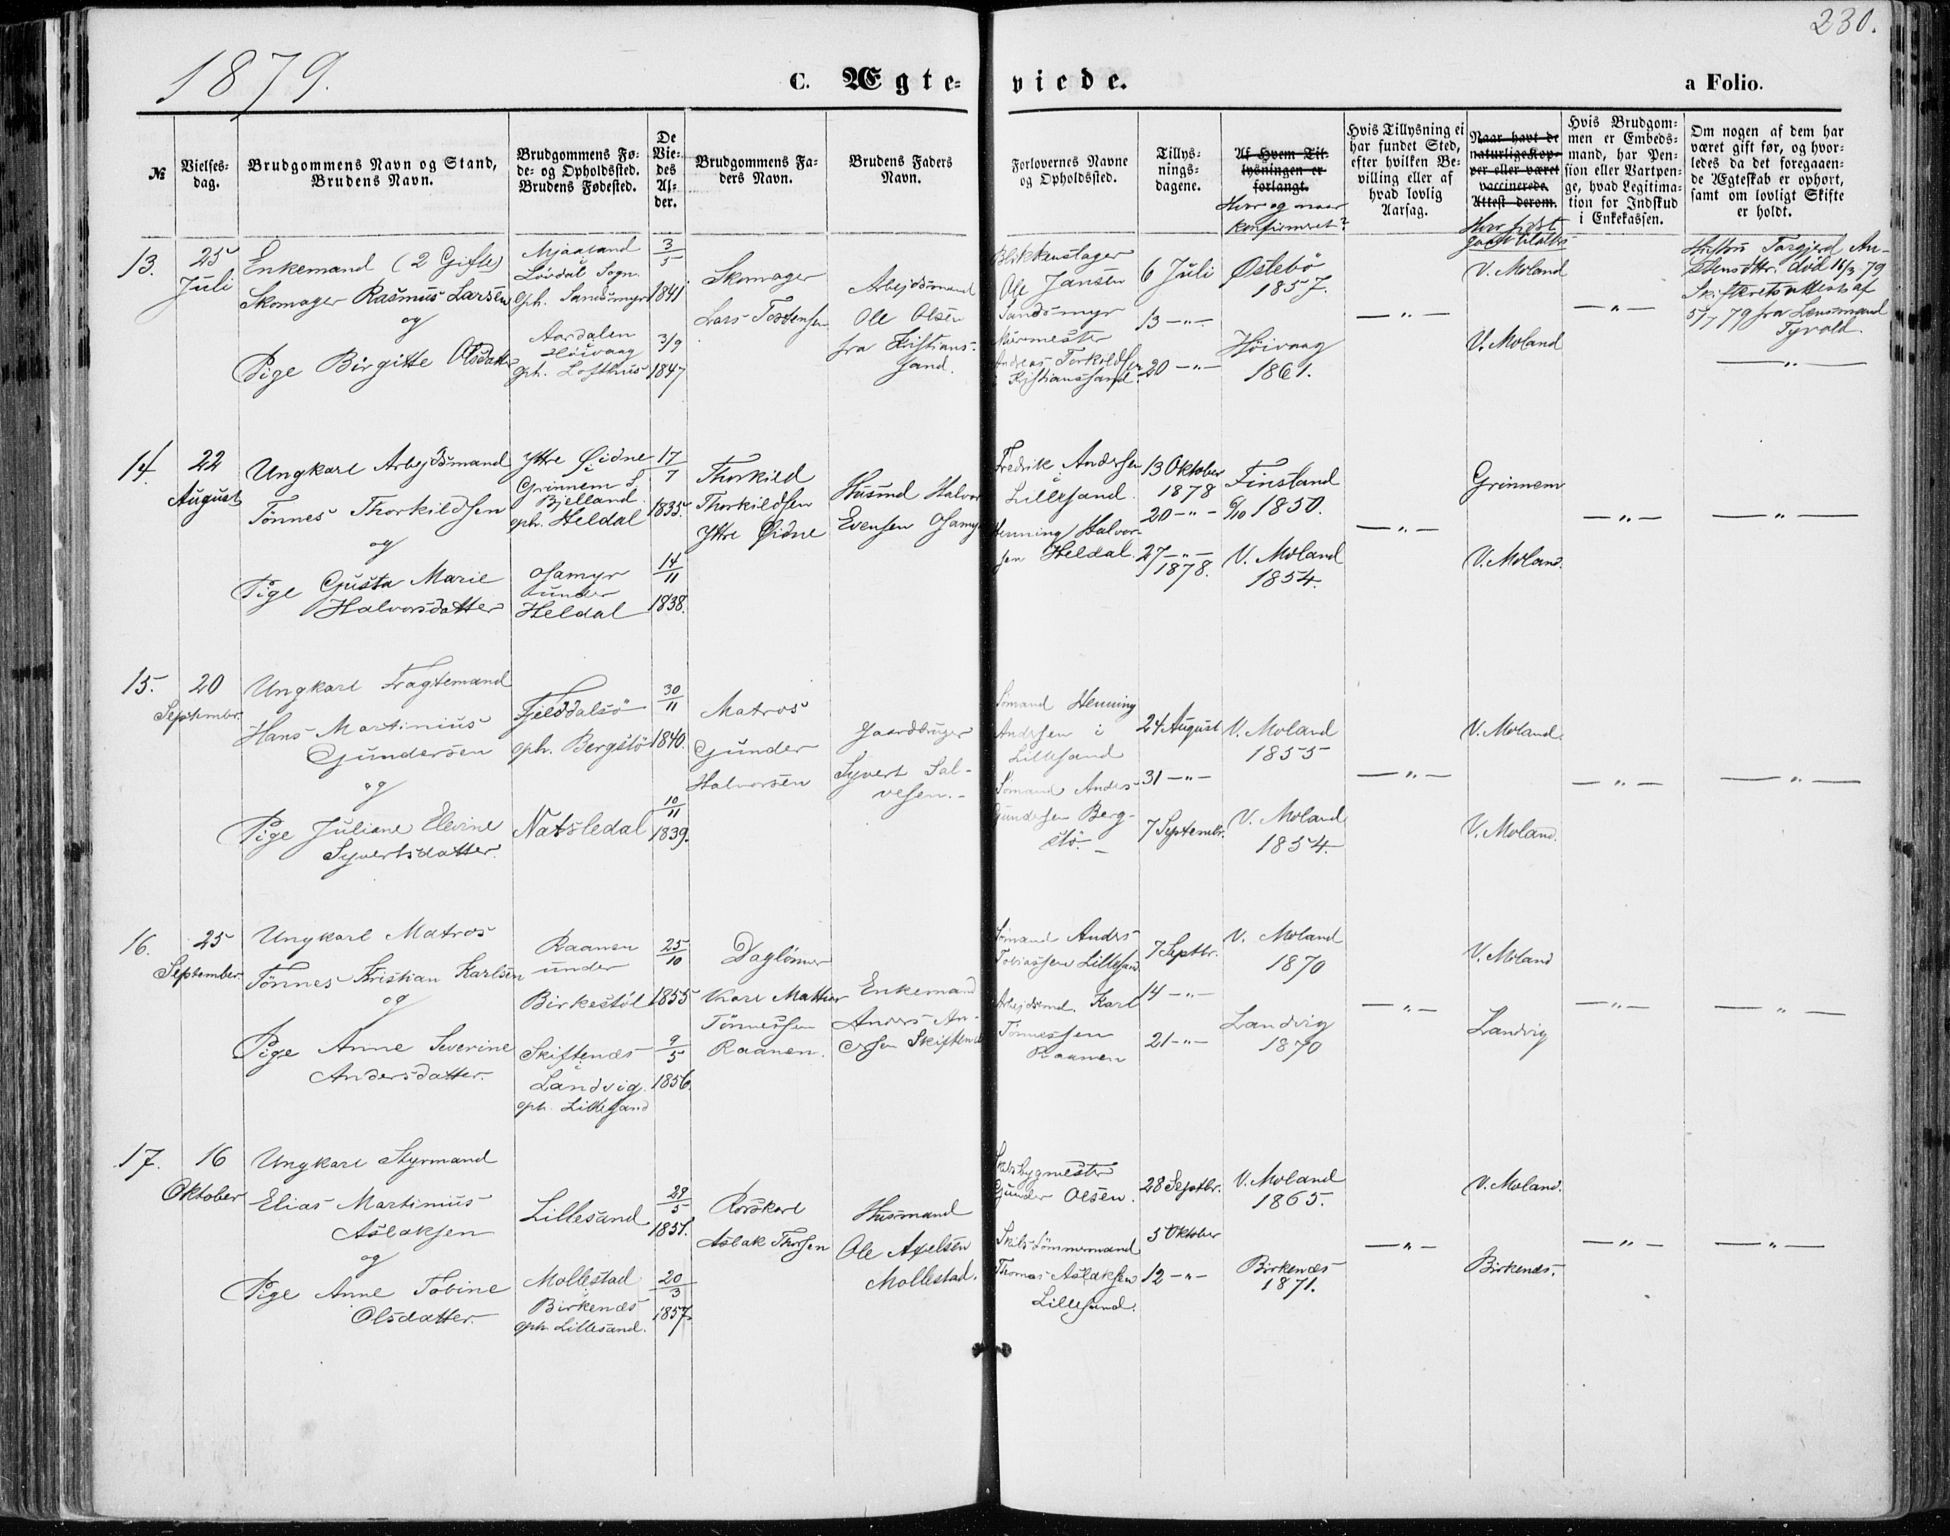 1879.
C. Ægte-
viede.
a Folio.
230.
№
Vielses-
dag.
Brudgommens Navn og Stand,
Brudens Navn.
Brudgommens Fø-
de- og Opholdssted.
Brudens Fødested.
De
Vie-
des
Al-
der.
Brudgommens Fa-
ders Navn.
Brudens Faders
Navn.
Forlovernes Navne
og Opholdssted.
Tillys-
nings-
dagene.
Af Hvem Til-
lysningen er
forlangt.
Hvor og naar
konfirmeret?
Hvis Tillysning ei
har fundet Sted,
efter hvilken Be-
villing eller af
hvad lovlig
Aarsag.
Naar havt de
naturlige Kop-
per eller været
vaccinerede.
Attest derom.
Hvor sidst
Hvis Brudgom-
men er Embeds-
mand, har Pen-
sion eller Vartpen-
ge, hvad Legitima-
tion for Indskud
i Enkekassen.
Om nogen af dem har
været gift før, og hvor-
ledes da det foregaaen-
de Ægteskab er ophørt,
samt om lovligt Skifte
er holdt.
13.
25
Juli
Enkemand (2 Gifte)
Skomager Rasmus Larsen
og
Pige Birgitte Olsdatter
Mjaaland
Løvdal Sogn.
oph. Sandsmyr
Aardalen
Høivaag
oph. Lofthus
3/5
1841
3/9
1847
Skomager
Lars Tostensen
Arbejdsmand
Ole Olsen
fra Kristians-
sand.
Blikkenslager
Ole Jansen
Sandsmyr
Murmester
Andreas Torkildsen
Kristianssand.
6 Juli
13 —"—
20 —"—
Østebö
1857.
Höivaag
1861.
—"—
V. Moland
V. Moland
—"—
Hustru Torgjerd An-
død 16/3 79
Skifteretsattest af
5/7 79 fra Lensmand
Tyvold.
—"—
14.
22
August
Ungkarl Arbejdsmand
Tønnes Thorkildsen
og
Pige Gusta Marie
Halvorsdatter
Ytre Øidne
Grinnem S.
Bjelland
oph. Heldal
Osamyr
under
Heldal
17/7
1835.
14/11
1838.
Thorkild
Thorkildsen
Ytre Øidne
Husmd Halvor
Evensen Osamyr
Fredrik Andersen
Lillesand.
Henning Halvor-
sen Heldal.
13 Oktober
1878
20 —"—
27 —"—
1878.
Finsland
6/10 1850.
V. Moland
1854.
—"—
Grinnem
V. Moland.
—"—
—"—
15.
20
Septembr.
Ungkarl Fragtemand
Hans Martinius
Gundersen
og
Pige Juliane Elevine
Syvertsdatter.
Fjelddalsö
oph. Bergstö
Natsledal
30/11
1840.
10/11
1839.
Matros
Gunder
Halvorsen
Gaardbruger
Syvert Sal-
vesen.
Sömand Henning
Andersen i
Lillesand
Sömand Anders
Gundersen Berg-
stö.
24 August
31 —"—
7 Septembr.
V. Moland
1855
V. Moland
1854.
—"—
V. Moland.
V. Moland.
—"—
—"—
16.
25
September.
Ungkarl Matros
Tönnes Kristian Karlsen
og
Pige Anne Severine
Andersdatter.
Raanen
under
Birkestöl
Skiftenæs
Landvig.
oph. Lillesand
25/10
1855
9/5
1856.
Daglönner
Karl Mathias
Tönnessen
Raanen.
Enkemand
Anders An-
ersen Skiftenæs
Sömand Anders
Tobiassen Lillesand
Arbejdsmd. Karl
Tönnessen
Raanen
7 Septbr.
14 —"—
21 —"—
V. Moland
1870
Landvig
1870
—"—
V. Moland
Landvig
—"—
—"—
17.
16
Oktober
Ungkarl Styrmand
Elias Martinius
Aslaksen
og
Pige Anne Tobine
Olsdatter.
Lillesand
Mollestad
Birkenæs
oph. Lillesand.
29/5
1851.
20/3
1857.
Rorskarl
Aslak Thorsen
Husmand
Ole Axelsen
Mollestad.
Skibsbygmester
Gunder Olsen.
Skibstömmermand
Thomas Aslaksen
Lillesand.
28 Septbr.
5 Oktober
12 —"—
V. Moland
1865.
Birkenæs
1871.
—"—
V. Moland.
Birkenæs.
—"—
—"—